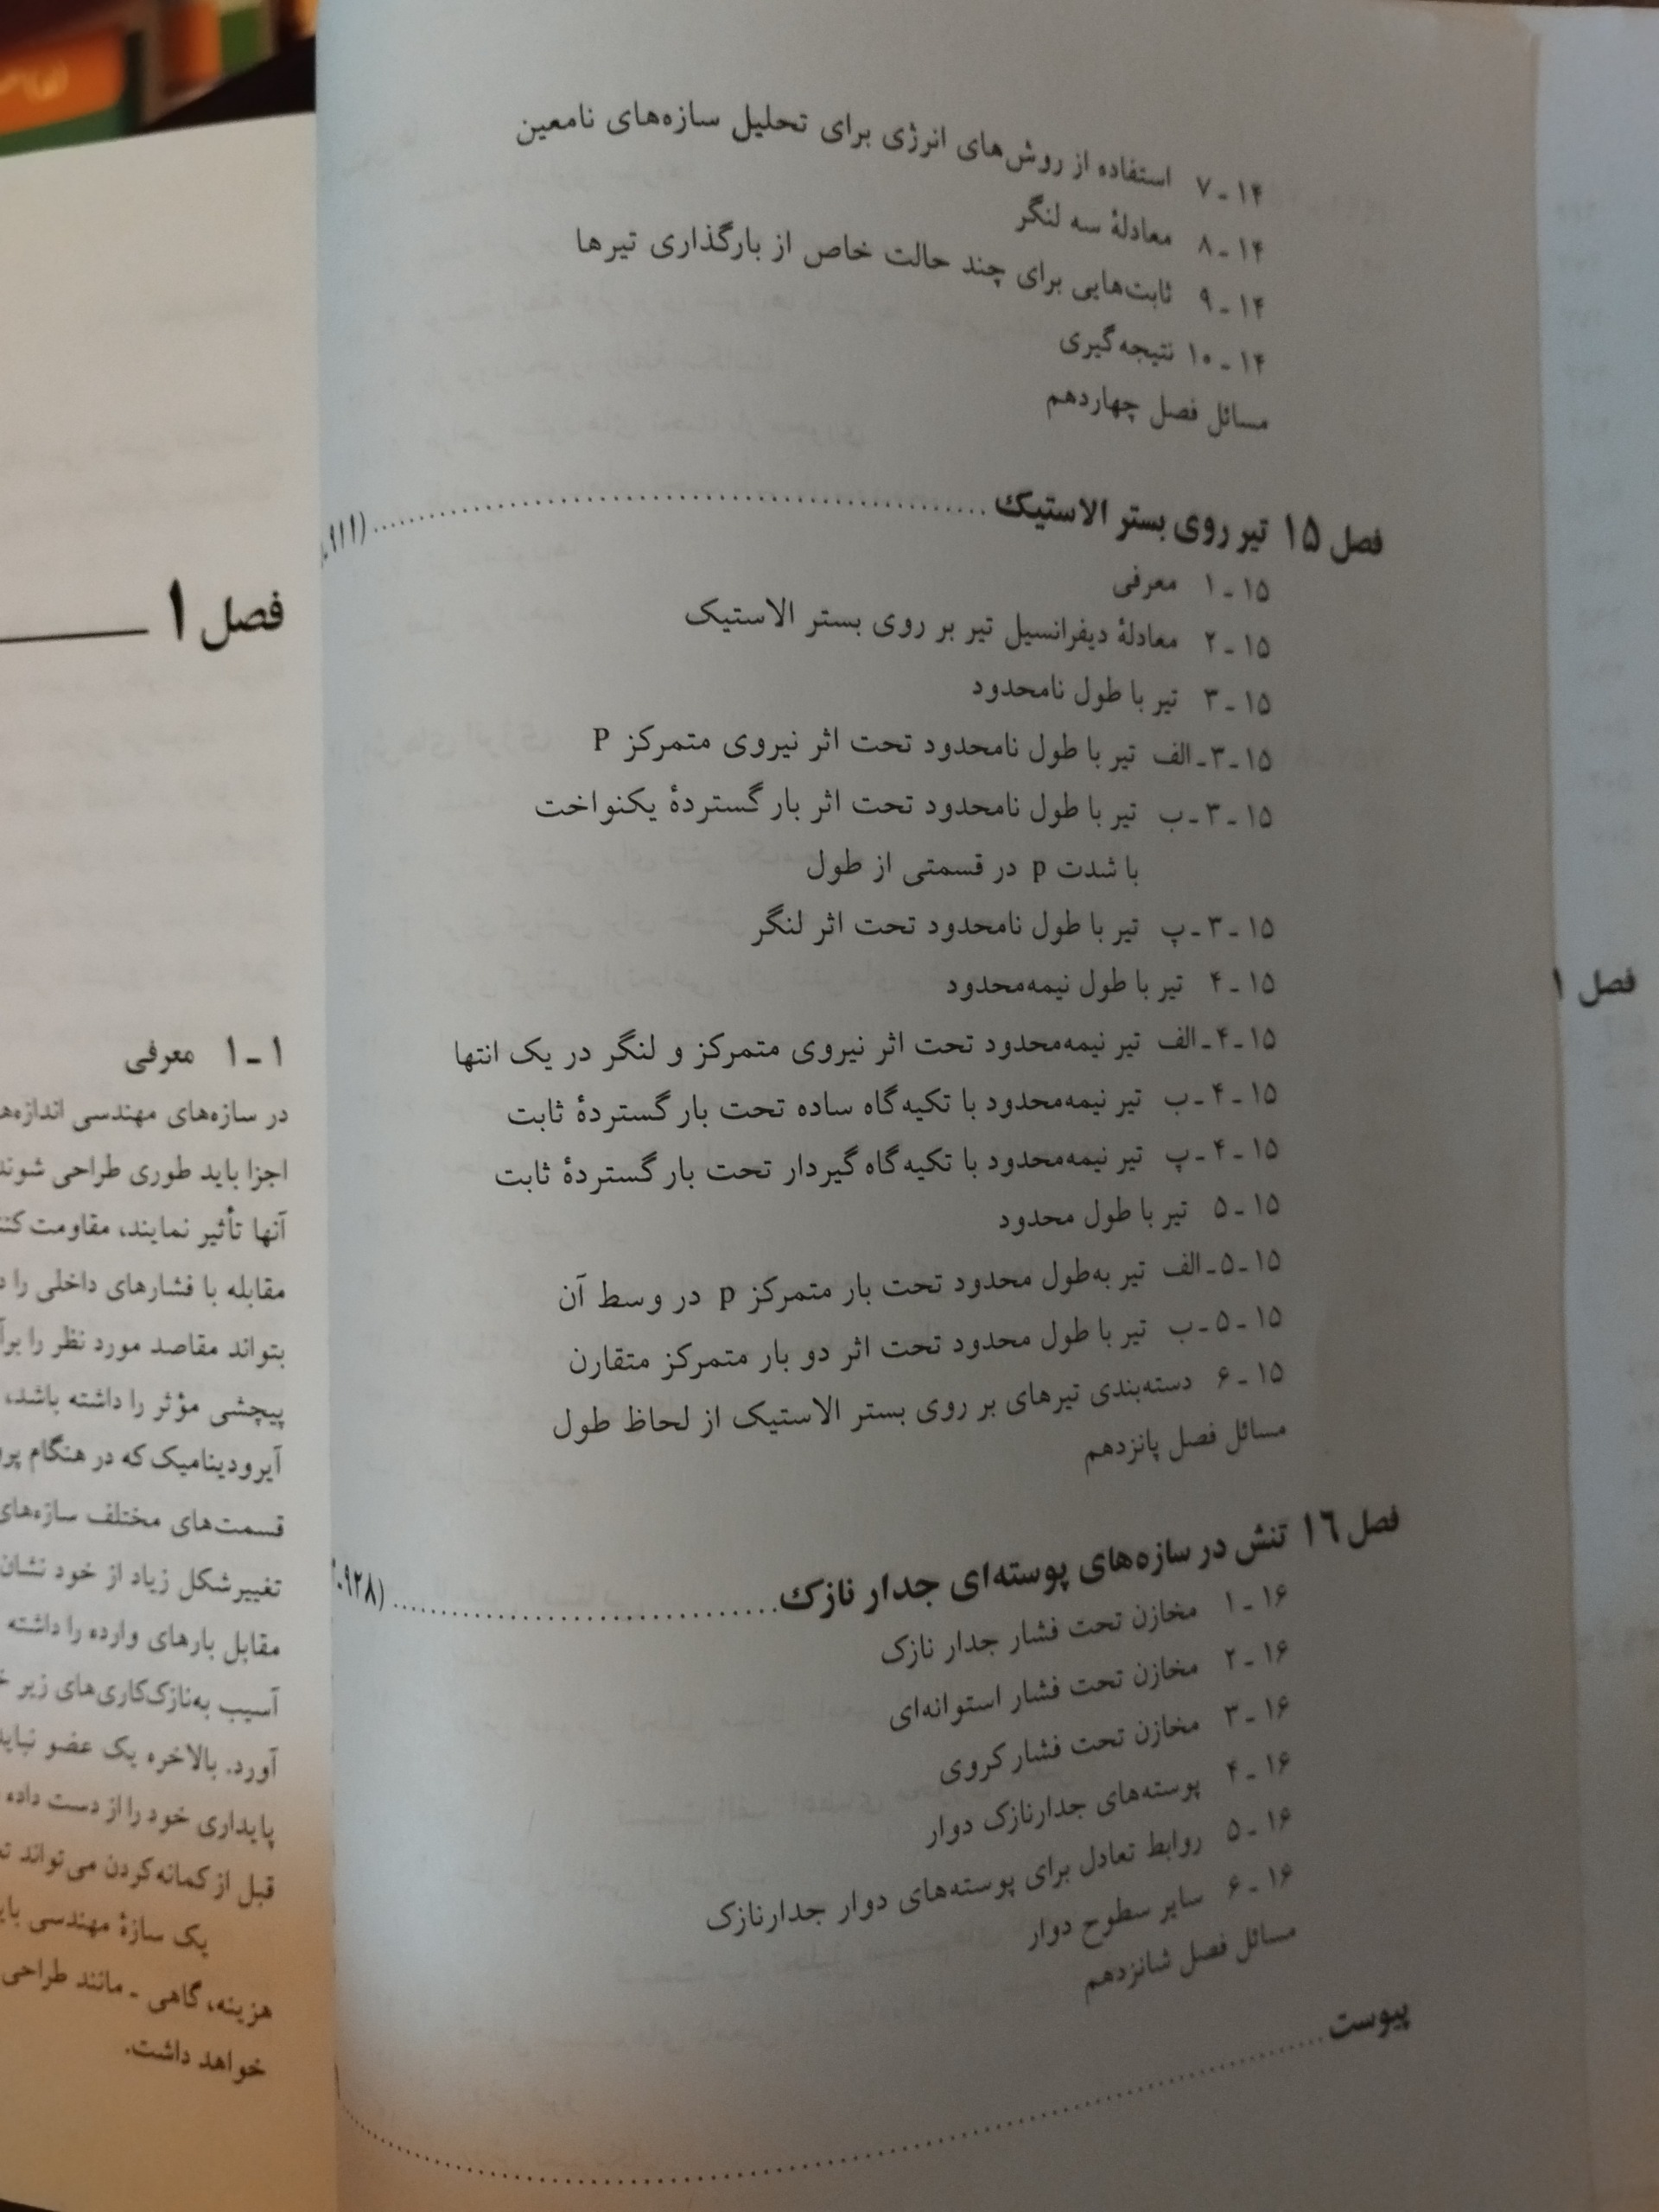 ۱۴ـ۷ استفاده از روش‌های انرژی برای تحلیل سازه‌های نامعین
۱۴ـ۸ معادلهٔ سه لنگر
۱۴ـ۹ ثابت‌هایی برای چند حالت خاص از بارگذاری تیرها
۱۴ـ۱۰ نتیجه‌گیری
مسائل فصل چهاردهم
فصل ۱۵ تیر روی بستر الاستیک
۱۵ـ۱ معرفی
۱۵ـ۲ معادلهٔ دیفرانسیل تیر بر روی بستر الاستیک
۱۵ـ۳ تیر با طول نامحدود
۱۵ـ۳ـ الف تیر با طول نامحدود تحت اثر نیروی متمرکز P
۱۵ـ۳ـ ب تیر با طول نامحدود تحت اثر بار گستردهٔ یکنواخت
با شدت p در قسمتی از طول
۱۵ـ۳ـ پ تیر با طول نامحدود تحت اثر لنگر
۱۵ـ۴ تیر با طول نیمه‌محدود
۱۵ـ۴ـ الف تیر نیمه‌محدود تحت اثر نیروی متمرکز و لنگر در یک انتها
۱۵ـ۴ـ ب تیر نیمه‌محدود با تکیه‌گاه ساده تحت بار گستردهٔ ثابت
۱۵ـ۴ـ پ تیر نیمه‌محدود با تکیه‌گاه گیردار تحت بار گستردهٔ ثابت
۱۵ـ۵ تیر با طول محدود
۱۵ـ۵ـ الف تیر به‌طول محدود تحت بار متمرکز p در وسط آن
۱۵ـ۵ـ ب تیر با طول محدود تحت اثر دو بار متمرکز متقارن
۱۵ـ۶ دسته‌بندی تیرهای بر روی بستر الاستیک از لحاظ طول
مسائل فصل پانزدهم
فصل ۱۶ تنش در سازه‌های پوسته‌ای جدار نازک
۱۶ـ۱ مخازن تحت فشار جدار نازک
۱۶ـ۲ مخازن تحت فشار استوانه‌ای
۱۶ـ۳ مخازن تحت فشار کروی
۱۶ـ۴ پوسته‌های جدارنازک دوار
۱۶ـ۵ روابط تعادل برای پوسته‌های دوار جدارنازک
۱۶ـ۶ سایر سطوح دوار
مسائل فصل شانزدهم
پیوست
فصل ۱
۱ـ۱ معرفی
در سازه‌های مهندسی
اجزا باید طوری طراحی شوند
آنها تأثیر نمایند، مقاومت
مقابله با فشارهای داخلی را
بتواند مقاصد مورد نظر را
پیچشی مؤثر را داشته باشد،
آیرودینامیک که در هنگام
قسمت‌های مختلف سازه‌های
تغییرشکل زیاد از خود نشان
مقابل بارهای وارده را داشته
آسیب به‌نازک‌کاری‌های زیر
آورد. بالاخره یک عضو نباید
پایداری خود را از دست داده
قبل از کمانه‌کردن می‌تواند
یک سازهٔ مهندسی
هزینه، گاهی ـ مانند طراحی
خواهد داشت.
فصل ۱